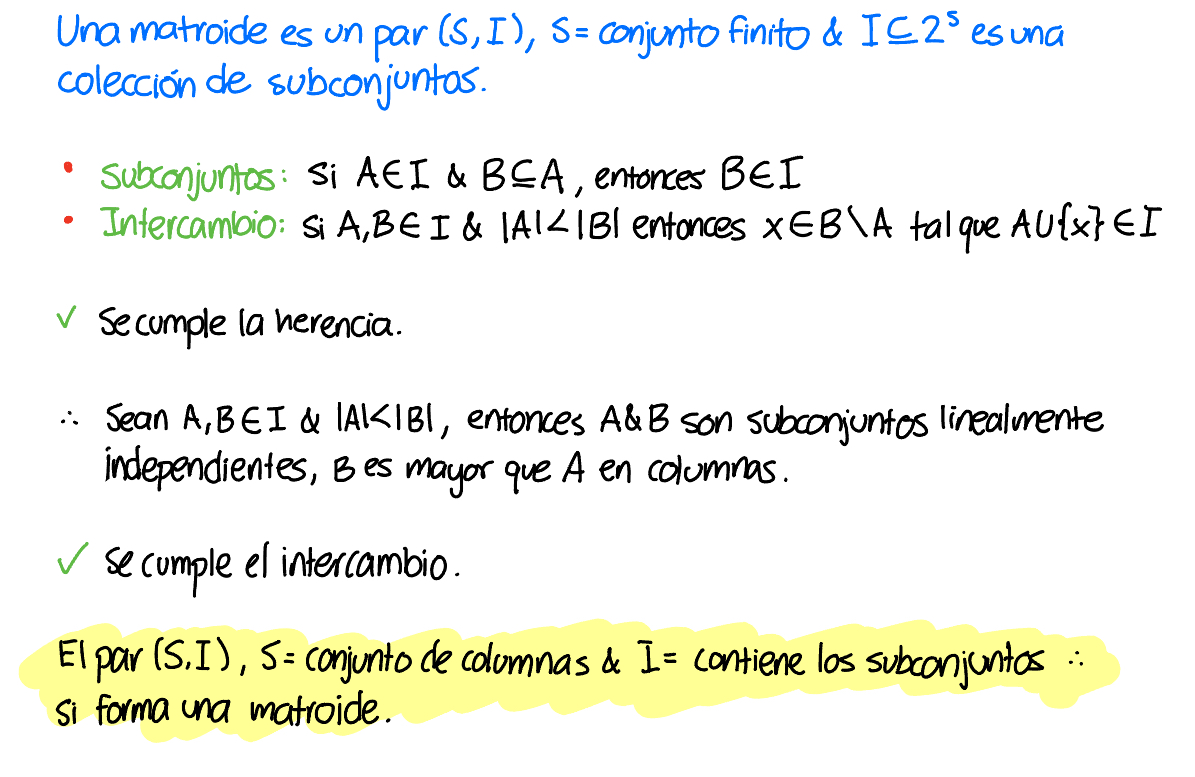 Una matroide es un par (S, I), S= conjunto finito & I⊆2ˢ es una
colección de subconjuntos.
• Subconjuntos: Si A∈I & B⊆A, entonces B∈I
• Intercambio: Si A,B∈I & |A|<|B| entonces x∈B\A tal que AU{x}∈I
✓ Se cumple la herencia.
∴ Sean A,B∈I & |A|<|B|, entonces A&B son subconjuntos linealmente
independientes, B es mayor que A en columnas.
✓ Se cumple el intercambio.
El par (S,I), S= conjunto de columnas & I= contiene los subconjuntos ∴
si forma una matroide.